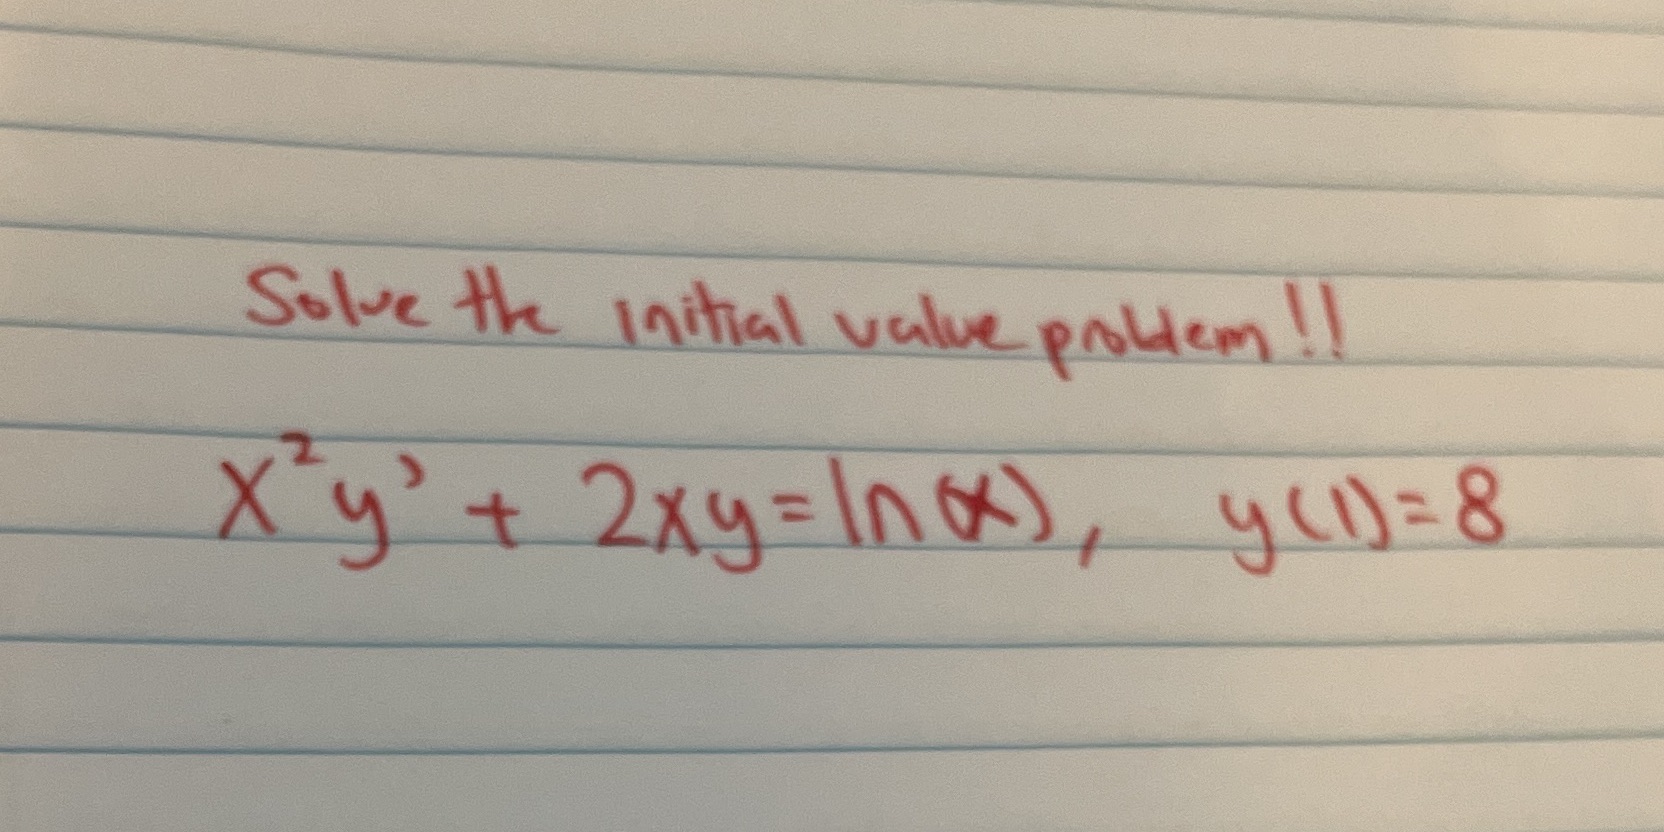 Solve the initial value problem!!
x²y' + 2xy = ln(x), y(1) = 8